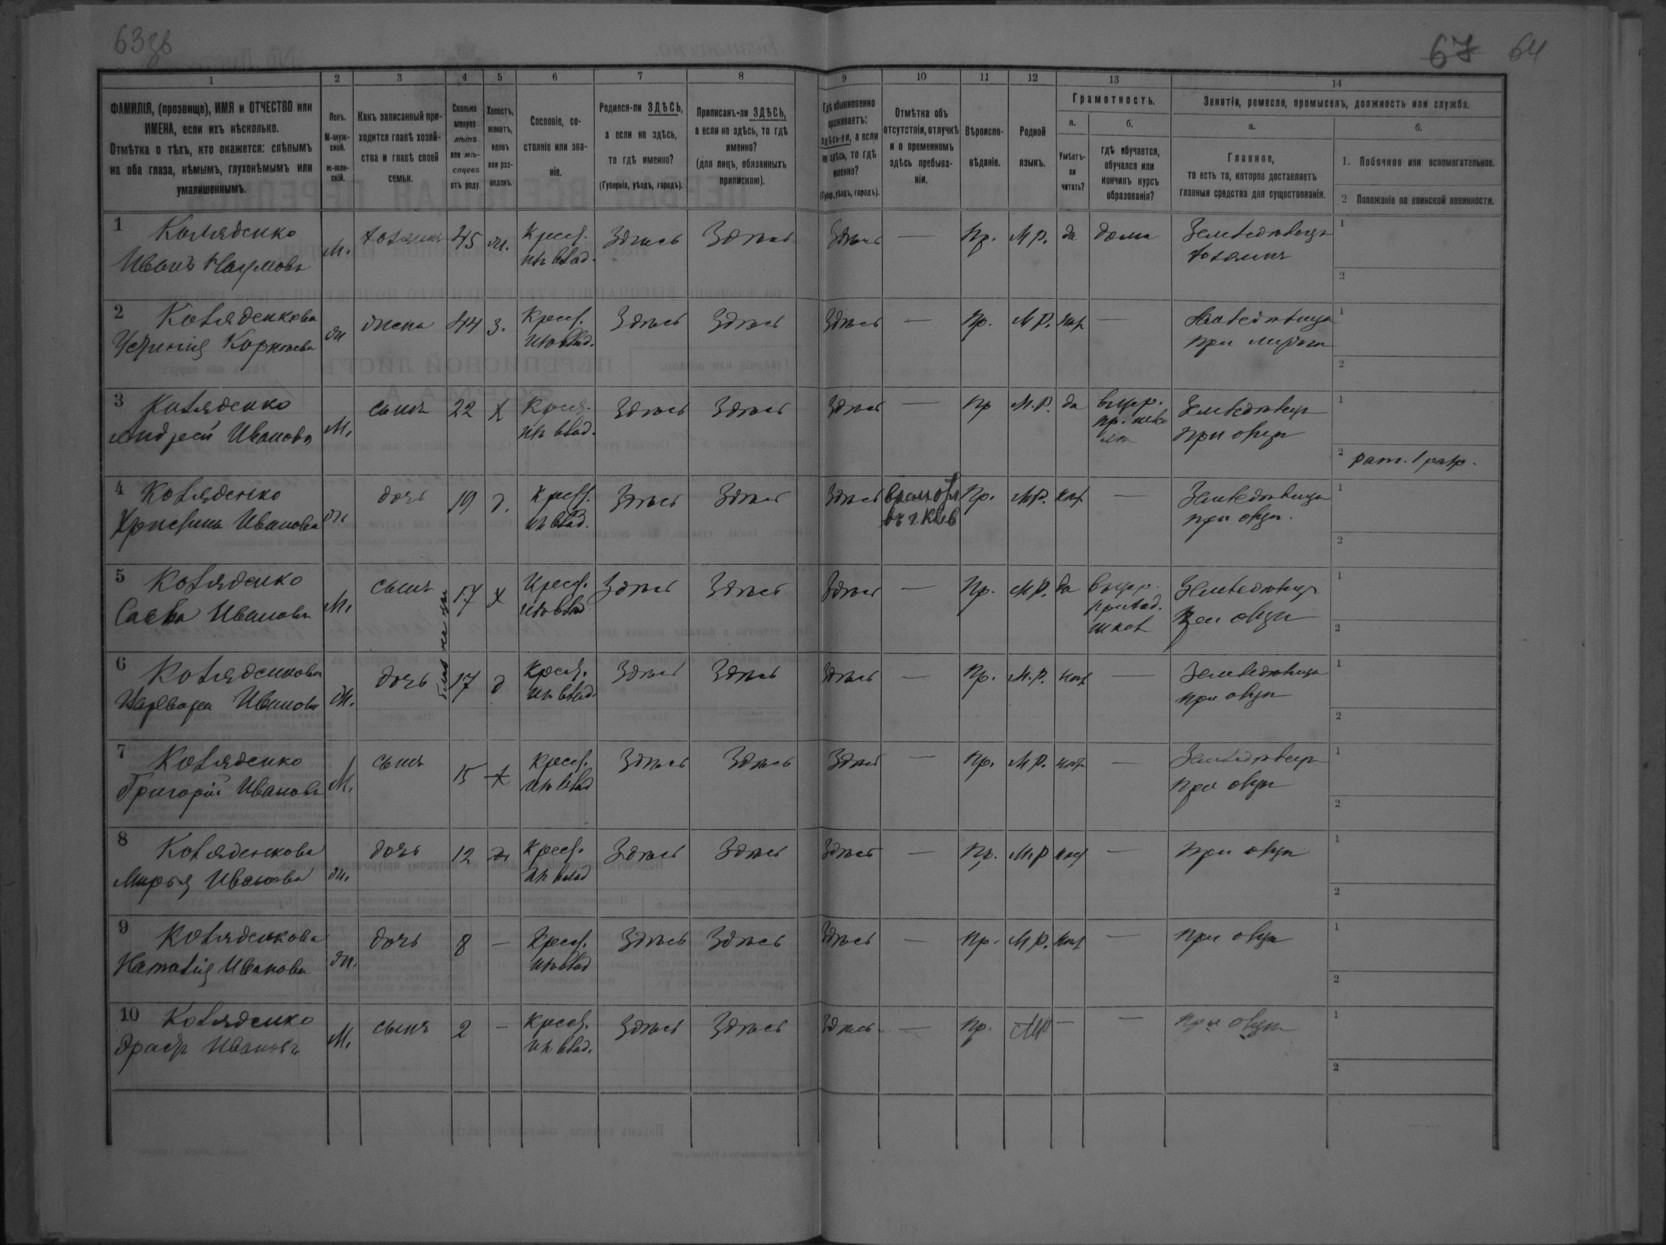 63об
67 64
1 2 3 4 5 6 7 8 9 10 11 12 13 14
ФАМИЛІЯ, (прозвище), ИМЯ и ОТЧЕСТВО или
ИМЕНА, если ихъ нѣсколько.
Отмѣтка о тѣхъ, кто окажется: слѣпымъ
на оба глаза, нѣмымъ, глухонѣмымъ или
умалишеннымъ.
Полъ.
М-муж-
ской.
ж-жен-
скій.
Какъ записанный при-
ходится главѣ хозяй-
ства и главѣ своей
семьи.
Сколько
минуло
лѣтъ
или мѣ-
сяцевъ
отъ роду.
Холостъ,
женатъ,
вдовъ
или раз-
веденъ.
Сословіе, со-
стояніе или зва-
ніе.
Родился-ли ЗДѢСЬ,
а если не здѣсь,
то гдѣ именно?
(Губернія, уѣздъ, городъ).
Приписанъ-ли ЗДѢСЬ,
а если не здѣсь, то гдѣ
именно?
(для лицъ, обязанныхъ
припискою).
Гдѣ обыкновенно
проживаетъ:
здѣсь-ли, а если
не здѣсь, то гдѣ
именно?
(Губер., уѣздъ, городъ).
Отмѣтка объ
отсутствіи, отлучкѣ
и о временномъ
здѣсь пребыва-
ніи.
Вѣроиспо-
вѣданіе.
Родной
языкъ.
Грамотность.
а.
Умѣетъ-
ли
читать?
б.
гдѣ обучается,
обучался или
кончилъ курсъ
образованія?
Занятія, ремесло, промыселъ, должность или служба.
а.
Главное,
то есть то, которое доставляетъ
главныя средства для существованія.
б.
1. Побочное или вспомогательное.
2 Положеніе по воинской повинности.
1 Коляденко хозяинъ 45 ж. Крест. Здѣсь Здѣсь Здѣсь — Пр. М.Р. да дома
Иванъ Наумовъ М. изъ влад. хозяинъ
2 Коляденкова жена 44 з. Крест. Здѣсь Здѣсь Здѣсь — Пр. М.Р. нѣт —
Устинія Корнѣева ж изъ влад. при мужѣ
3 Коляденко сынъ 22 х Крест. Здѣсь Здѣсь Здѣсь — Пр М.Р. да
Андрей Ивановъ М. изъ влад. при отцѣ
2 рат. 1 разр.
4 Коляденко дочь 19 д. Крест. Здѣсь Здѣсь Здѣсь Пр. М.Р. нѣт —
Христина Иванова ж изъ влад. въ г. Кіев при отцѣ.
5 Коляденко сынъ 17 х Крест. Здѣсь Здѣсь Здѣсь — Пр. М.Р. да
Савва Ивановъ М. изъ влад школ при отцѣ
6 Коляденкова дочь 17 д Крест. Здѣсь Здѣсь Здѣсь — Пр. М.Р. нѣт —
Варвара Иванова ж. изъ влад. при отцѣ
7 Коляденко сынъ 15 х Крест. Здѣсь Здѣсь Здѣсь — Пр. М.Р. нѣт —
Григорій Ивановъ М. изъ влад при отцѣ
8 Коляденкова дочь 12 д Крест. Здѣсь Здѣсь Здѣсь — Пр. М.Р нѣт — при отцѣ
Марья Иванова ж. изъ влад
9 Коляденкова дочь 8 — Крест. Здѣсь Здѣсь Здѣсь — Пр. М.Р. нѣт — при отцѣ
Наталія Иванова ж. изъ влад
10 Коляденко сынъ 2 — Крест. Здѣсь Здѣсь Здѣсь — Пр. МР — — при отцѣ
Ивановъ М. изъ влад.